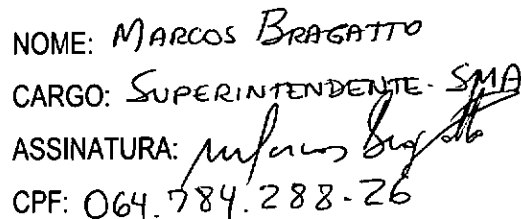 NOME: MARCOS BRAGATTO
CARGO: SUPERINTENDENTE - SMA
ASSINATURA:
CPF: 064.784.288-26